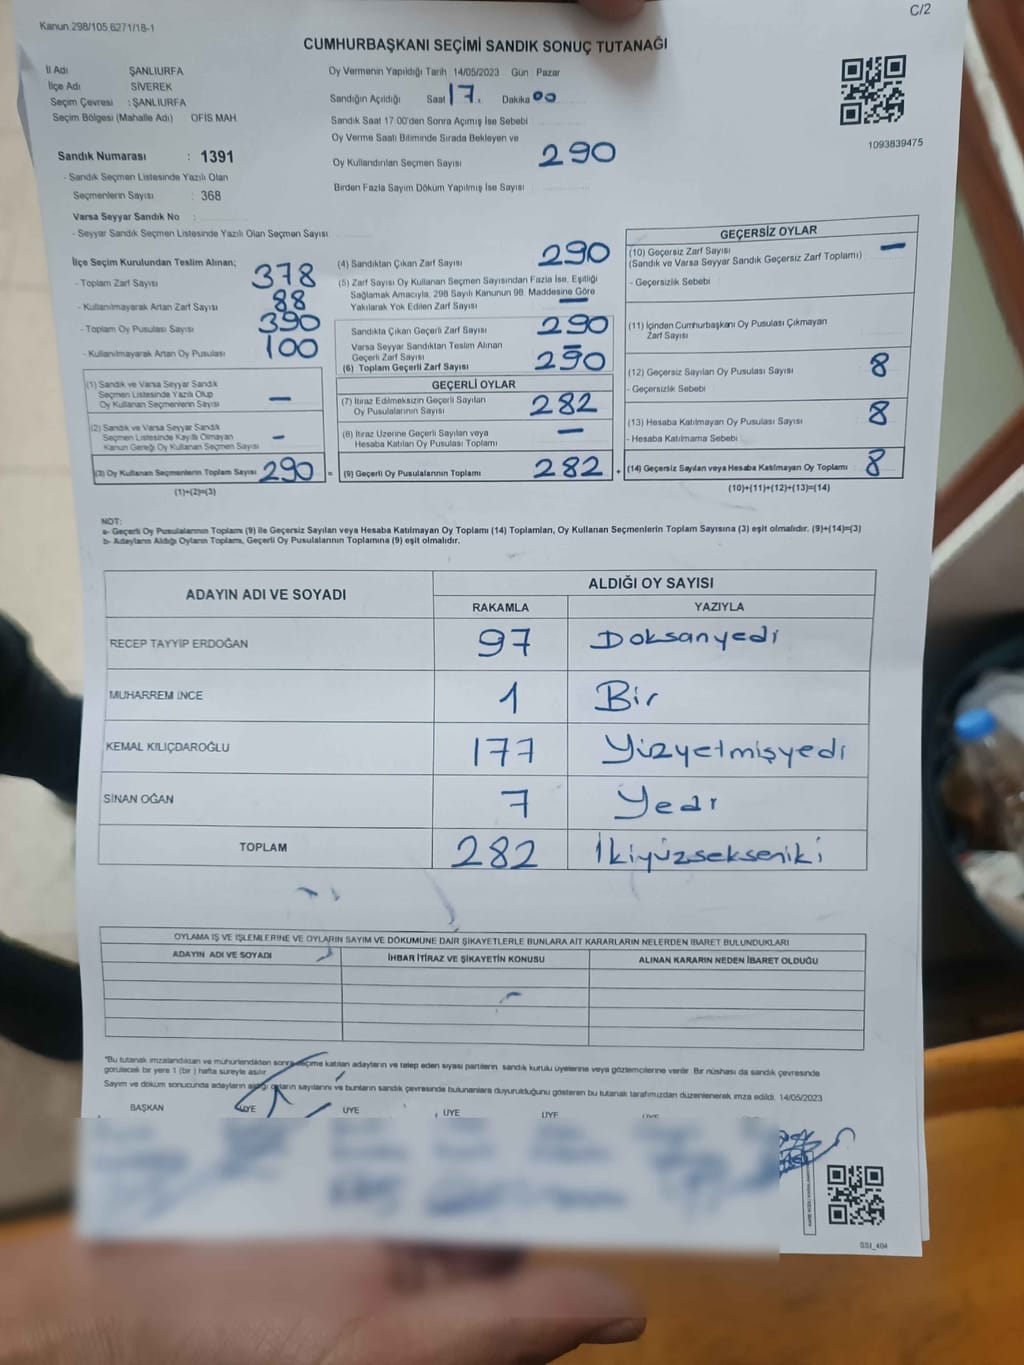 Kanun 298/105,6271/18-1
C/2
CUMHURBAŞKANI SEÇİMİ SANDIK SONUÇ TUTANAĞI
İl Adı ŞANLIURFA
İlçe Adı SİVEREK
Seçim Çevresi : ŞANLIURFA
Seçim Bölgesi (Mahalle Adı) OFİS MAH
Sandık Numarası : 1391
- Sandık Seçmen Listesinde Yazılı Olan
Seçmenlerin Sayısı : 368
Varsa Seyyar Sandık No :
- Seyyar Sandık Seçmen Listesinde Yazılı Olan Seçmen Sayısı:
Oy Vermenin Yapıldığı Tarih 14/05/2023 Gün Pazar
Sandığın Açıldığı Saat 17 Dakika 00
Sandık Saat 17:00'den Sonra Açımış İse Sebebi
Oy Verme Saati Bitiminde Sırada Bekleyen ve
Oy Kullandırılan Seçmen Sayısı 290
Birden Fazla Sayım Döküm Yapılmış İse Sayısı
1093839475
İlçe Seçim Kurulundan Teslim Alınan;
- Toplam Zarf Sayısı 378
- Kullanılmayarak Artan Zarf Sayısı 88
- Toplam Oy Pusulası Sayısı 390
- Kullanılmayarak Artan Oy Pusulası 100
(1) Sandık ve Varsa Seyyar Sandık
Seçmen Listesinde Yazılı Olup
Oy Kullanan Seçmenlerin Sayısı —
(2) Sandık ve Varsa Seyyar Sandık
Seçmen Listesinde Kayıtlı Olmayan
Kanun Gereği Oy Kullanan Seçmen Sayısı -
(3) Oy Kullanan Seçmenlerin Toplam Sayısı 290 =
(1)+(2)=(3)
(4) Sandıktan Çıkan Zarf Sayısı 290
(5) Zarf Sayısı Oy Kullanan Seçmen Sayısından Fazla İse, Eşitliği
Sağlamak Amacıyla, 298 Sayılı Kanunun 98. Maddesine Göre
Yakılarak Yok Edilen Zarf Sayısı —
Sandıkta Çıkan Geçerli Zarf Sayısı 290
Varsa Seyyar Sandıktan Teslim Alınan
Geçerli Zarf Sayısı —
(6) Toplam Geçerli Zarf Sayısı 290
GEÇERLİ OYLAR
(7) İtiraz Edilmeksizin Geçerli Sayılan
Oy Pusulalarının Sayısı 282
(8) İtiraz Üzerine Geçerli Sayılan veya
Hesaba Katılan Oy Pusulası Toplamı —
(9) Geçerli Oy Pusulalarının Toplamı 282 +
GEÇERSİZ OYLAR
(10) Geçersiz Zarf Sayısı —
(Sandık ve Varsa Seyyar Sandık Geçersiz Zarf Toplamı)
- Geçersizlik Sebebi
(11) İçinden Cumhurbaşkanı Oy Pusulası Çıkmayan
Zarf Sayısı
(12) Geçersiz Sayılan Oy Pusulası Sayısı 8
- Geçersizlik Sebebi
(13) Hesaba Katılmayan Oy Pusulası Sayısı 8
- Hesaba Katılmama Sebebi
(14) Geçersiz Sayılan veya Hesaba Katılmayan Oy Toplamı 8
(10)+(11)+(12)+(13)=(14)
NOT:
a- Geçerli Oy Pusulalarının Toplamı (9) ile Geçersiz Sayılan veya Hesaba Katılmayan Oy Toplamı (14) Toplamları, Oy Kullanan Seçmenlerin Toplam Sayısına (3) eşit olmalıdır. (9)+(14)=(3)
b- Adayların Aldığı Oyların Toplamı, Geçerli Oy Pusulalarının Toplamına (9) eşit olmalıdır.
ADAYIN ADI VE SOYADI ALDIĞI OY SAYISI
RAKAMLA YAZIYLA
RECEP TAYYİP ERDOĞAN 97 Doksanyedi
MUHARREM İNCE 1 Bir
KEMAL KILIÇDAROĞLU 177 Yüzyetmişyedi
SİNAN OĞAN 7 Yedi
TOPLAM 282 İkiyüzsekseniki
OYLAMA İŞ VE İŞLEMLERİNE VE OYLARIN SAYIM VE DÖKÜMÜNE DAİR ŞİKAYETLERLE BUNLARA AİT KARARLARIN NELERDEN İBARET BULUNDUKLARI
ADAYIN ADI VE SOYADI İHBAR İTİRAZ VE ŞİKAYETİN KONUSU ALINAN KARARIN NEDEN İBARET OLDUĞU
"Bu tutanak imzalandıktan ve mühürlendikten sonra seçime katılan adayların ve talep eden siyasi partilerin sandık kurulu üyelerine veya gözlemcilerine verilir. Bir nüshası da sandık çevresinde
görülecek bir yere 1 (bir) hafta süreyle asılır
Sayım ve döküm sonucunda adayların aldığı oyların sayılarını ve bunların sandık çevresinde bulunanlara duyurulduğunu gösteren bu tutanak tarafımızdan düzenlenerek imza edildi. 14/05/2023
BAŞKAN ÜYE ÜYE ÜYE ÜYE ÜYE
SSI_404